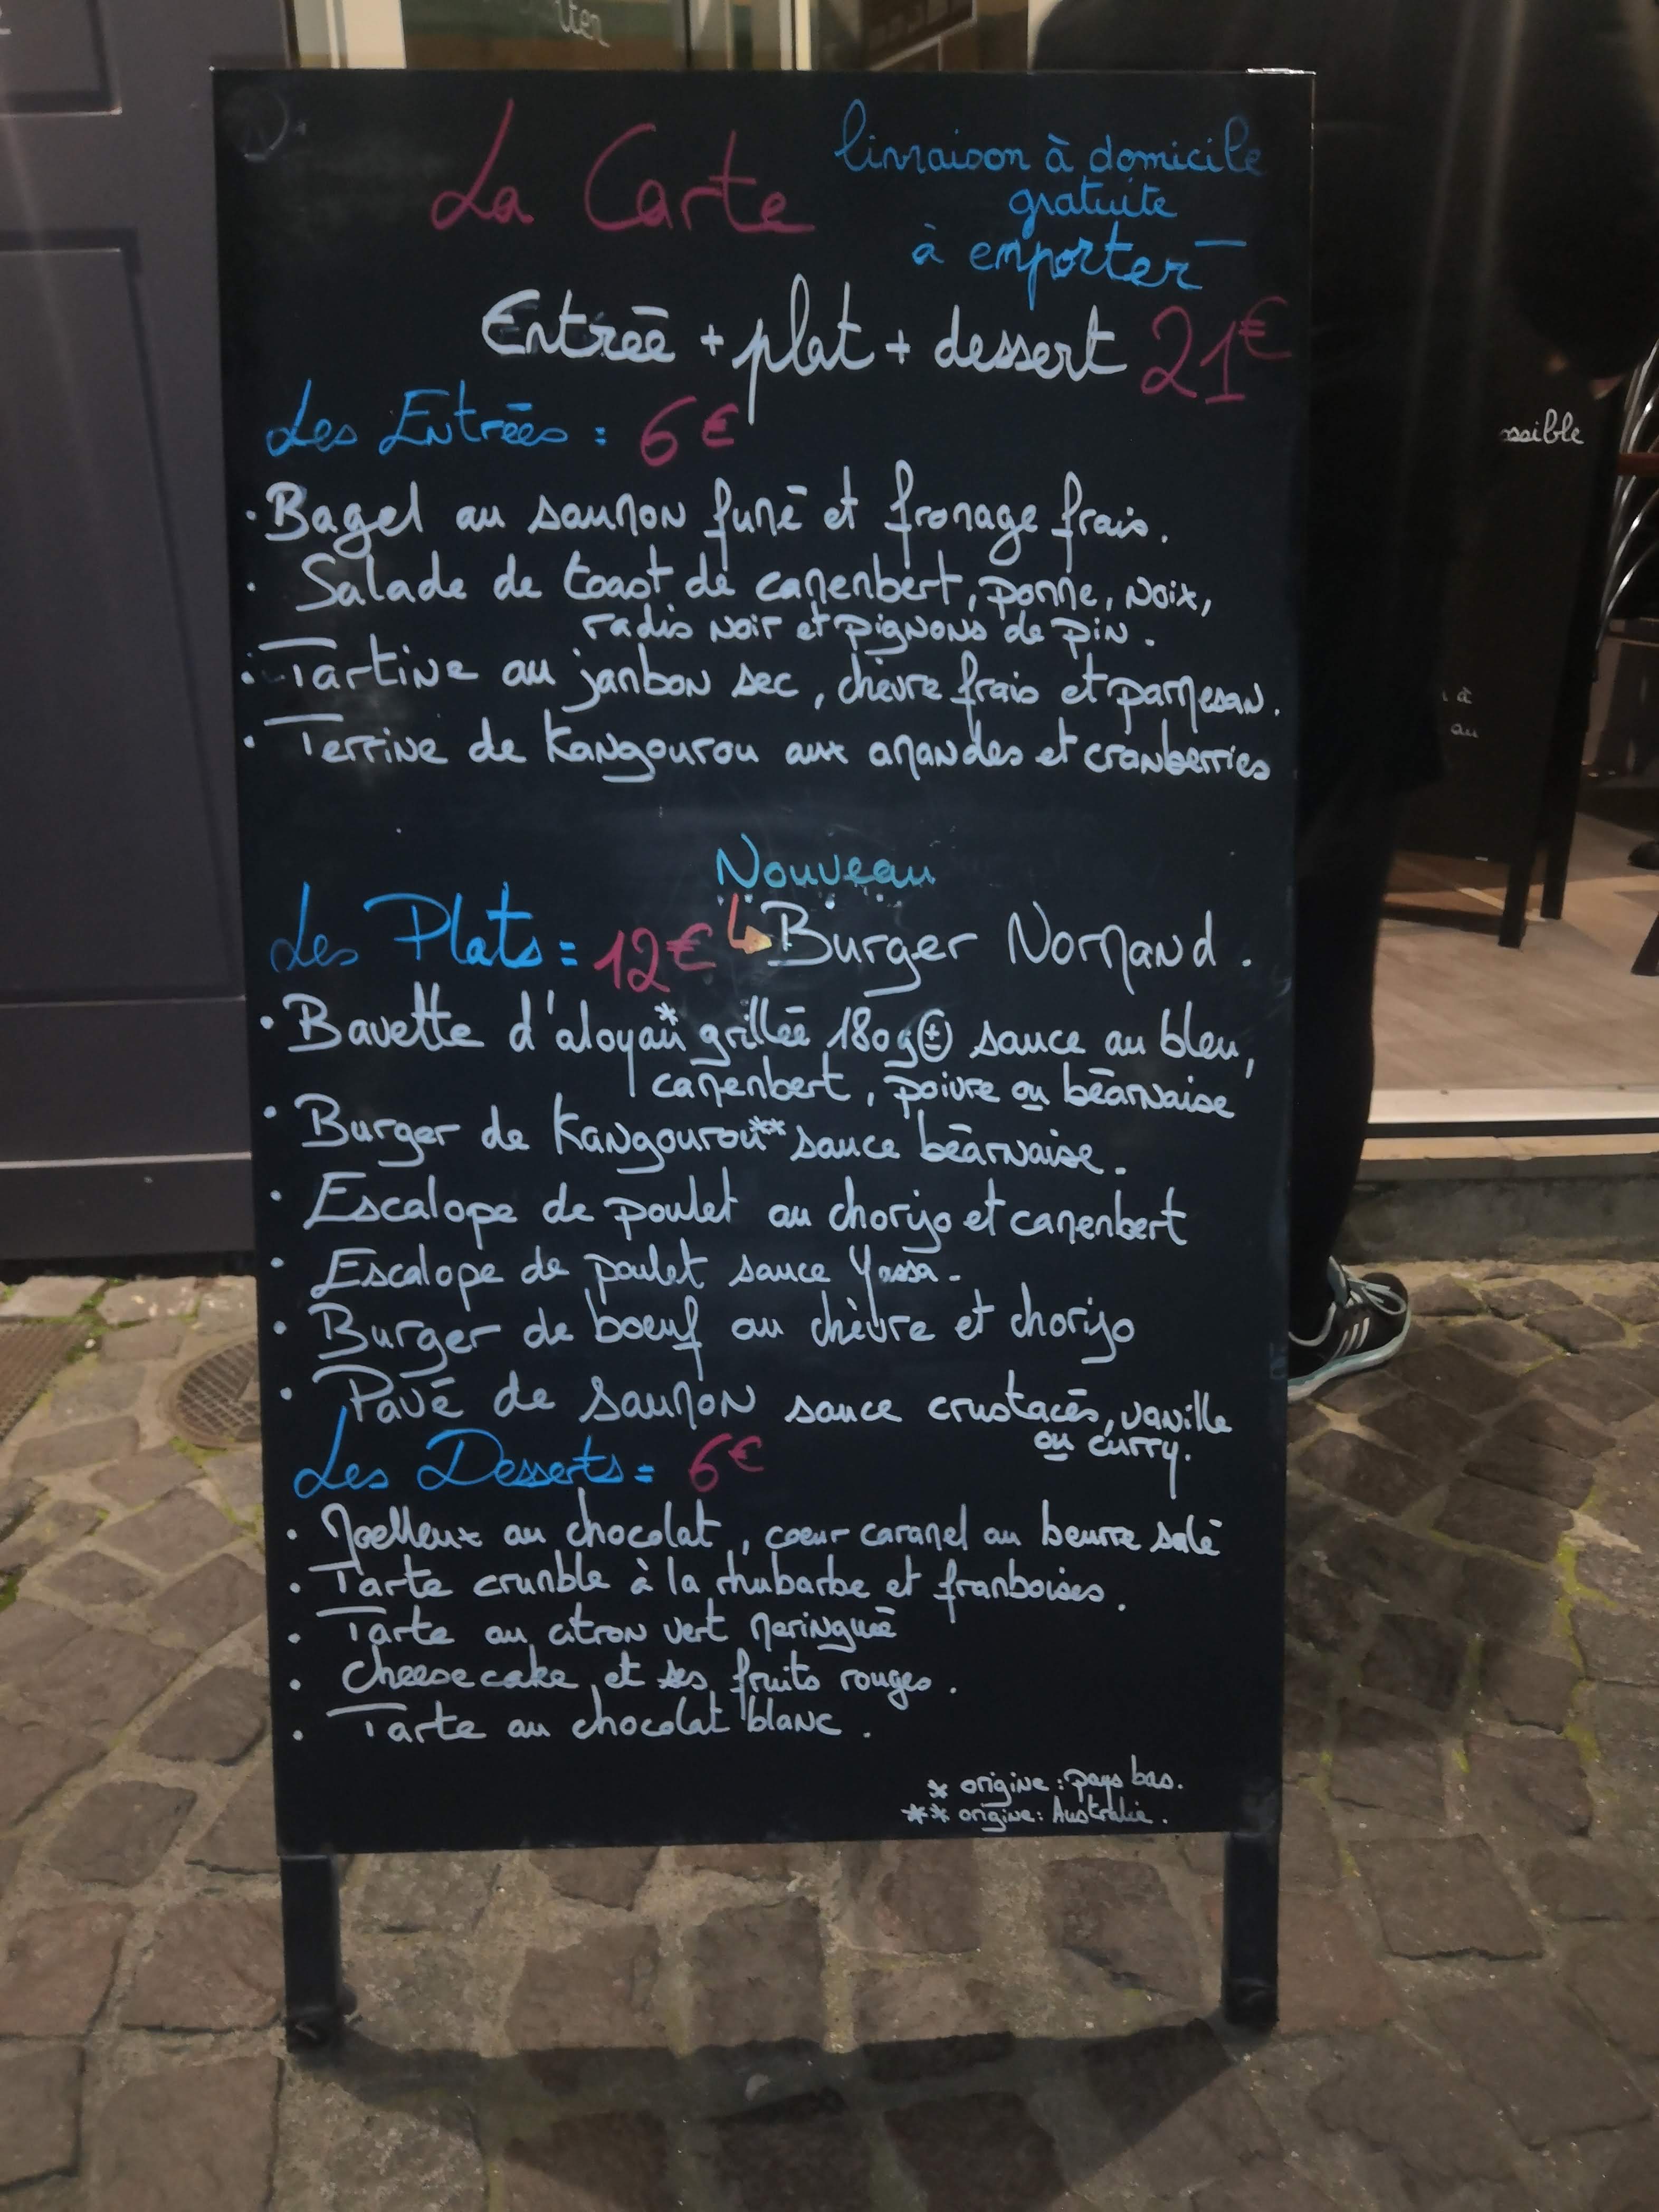 La Carte
livraison à domicile
gratuite
à emporter
Entrée + plat + dessert 21€
Les Entrées : 6€
• Bagel au saumon fumé et fromage frais.
• Salade de toast de camembert, pomme, noix,
radis noir et pignons de pin.
• Tartine au jambon sec, chèvre frais et parmesan.
• Terrine de Kangourou aux amandes et cranberries
Nouveau
Les Plats = 12€ Burger Normand.
• Bavette d'aloyau* grillée 180g ± sauce au bleu,
camembert, poivre ou béarnaise
• Burger de Kangourou** sauce béarnaise.
• Escalope de poulet au chorizo et camembert
• Escalope de poulet sauce Yassa.
• Burger de boeuf au chèvre et chorizo
• Pavé de saumon sauce crustacés, vanille
ou curry.
Les Desserts = 6€
• Moelleux au chocolat, coeur caramel au beurre salé
• Tarte crumble à la rhubarbe et framboises.
• Tarte au citron vert meringuée
• Cheesecake et ses fruits rouges.
• Tarte au chocolat blanc.
* origine : pays bas.
** origine : Australie.